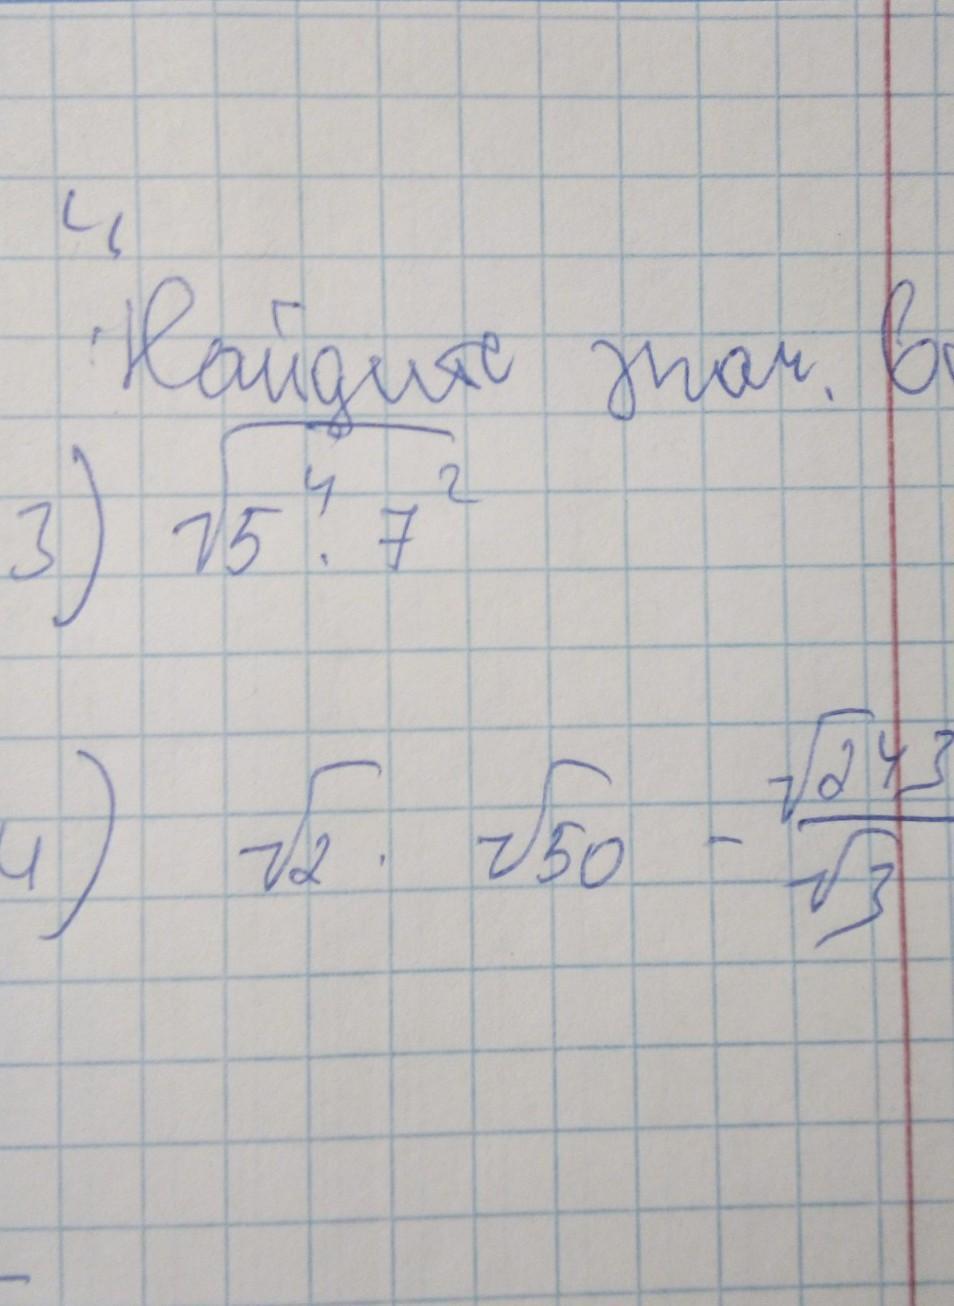 4
Найдите знач. 
3) √5⁴ · 7²
4) √2 · √50 - √243/√3